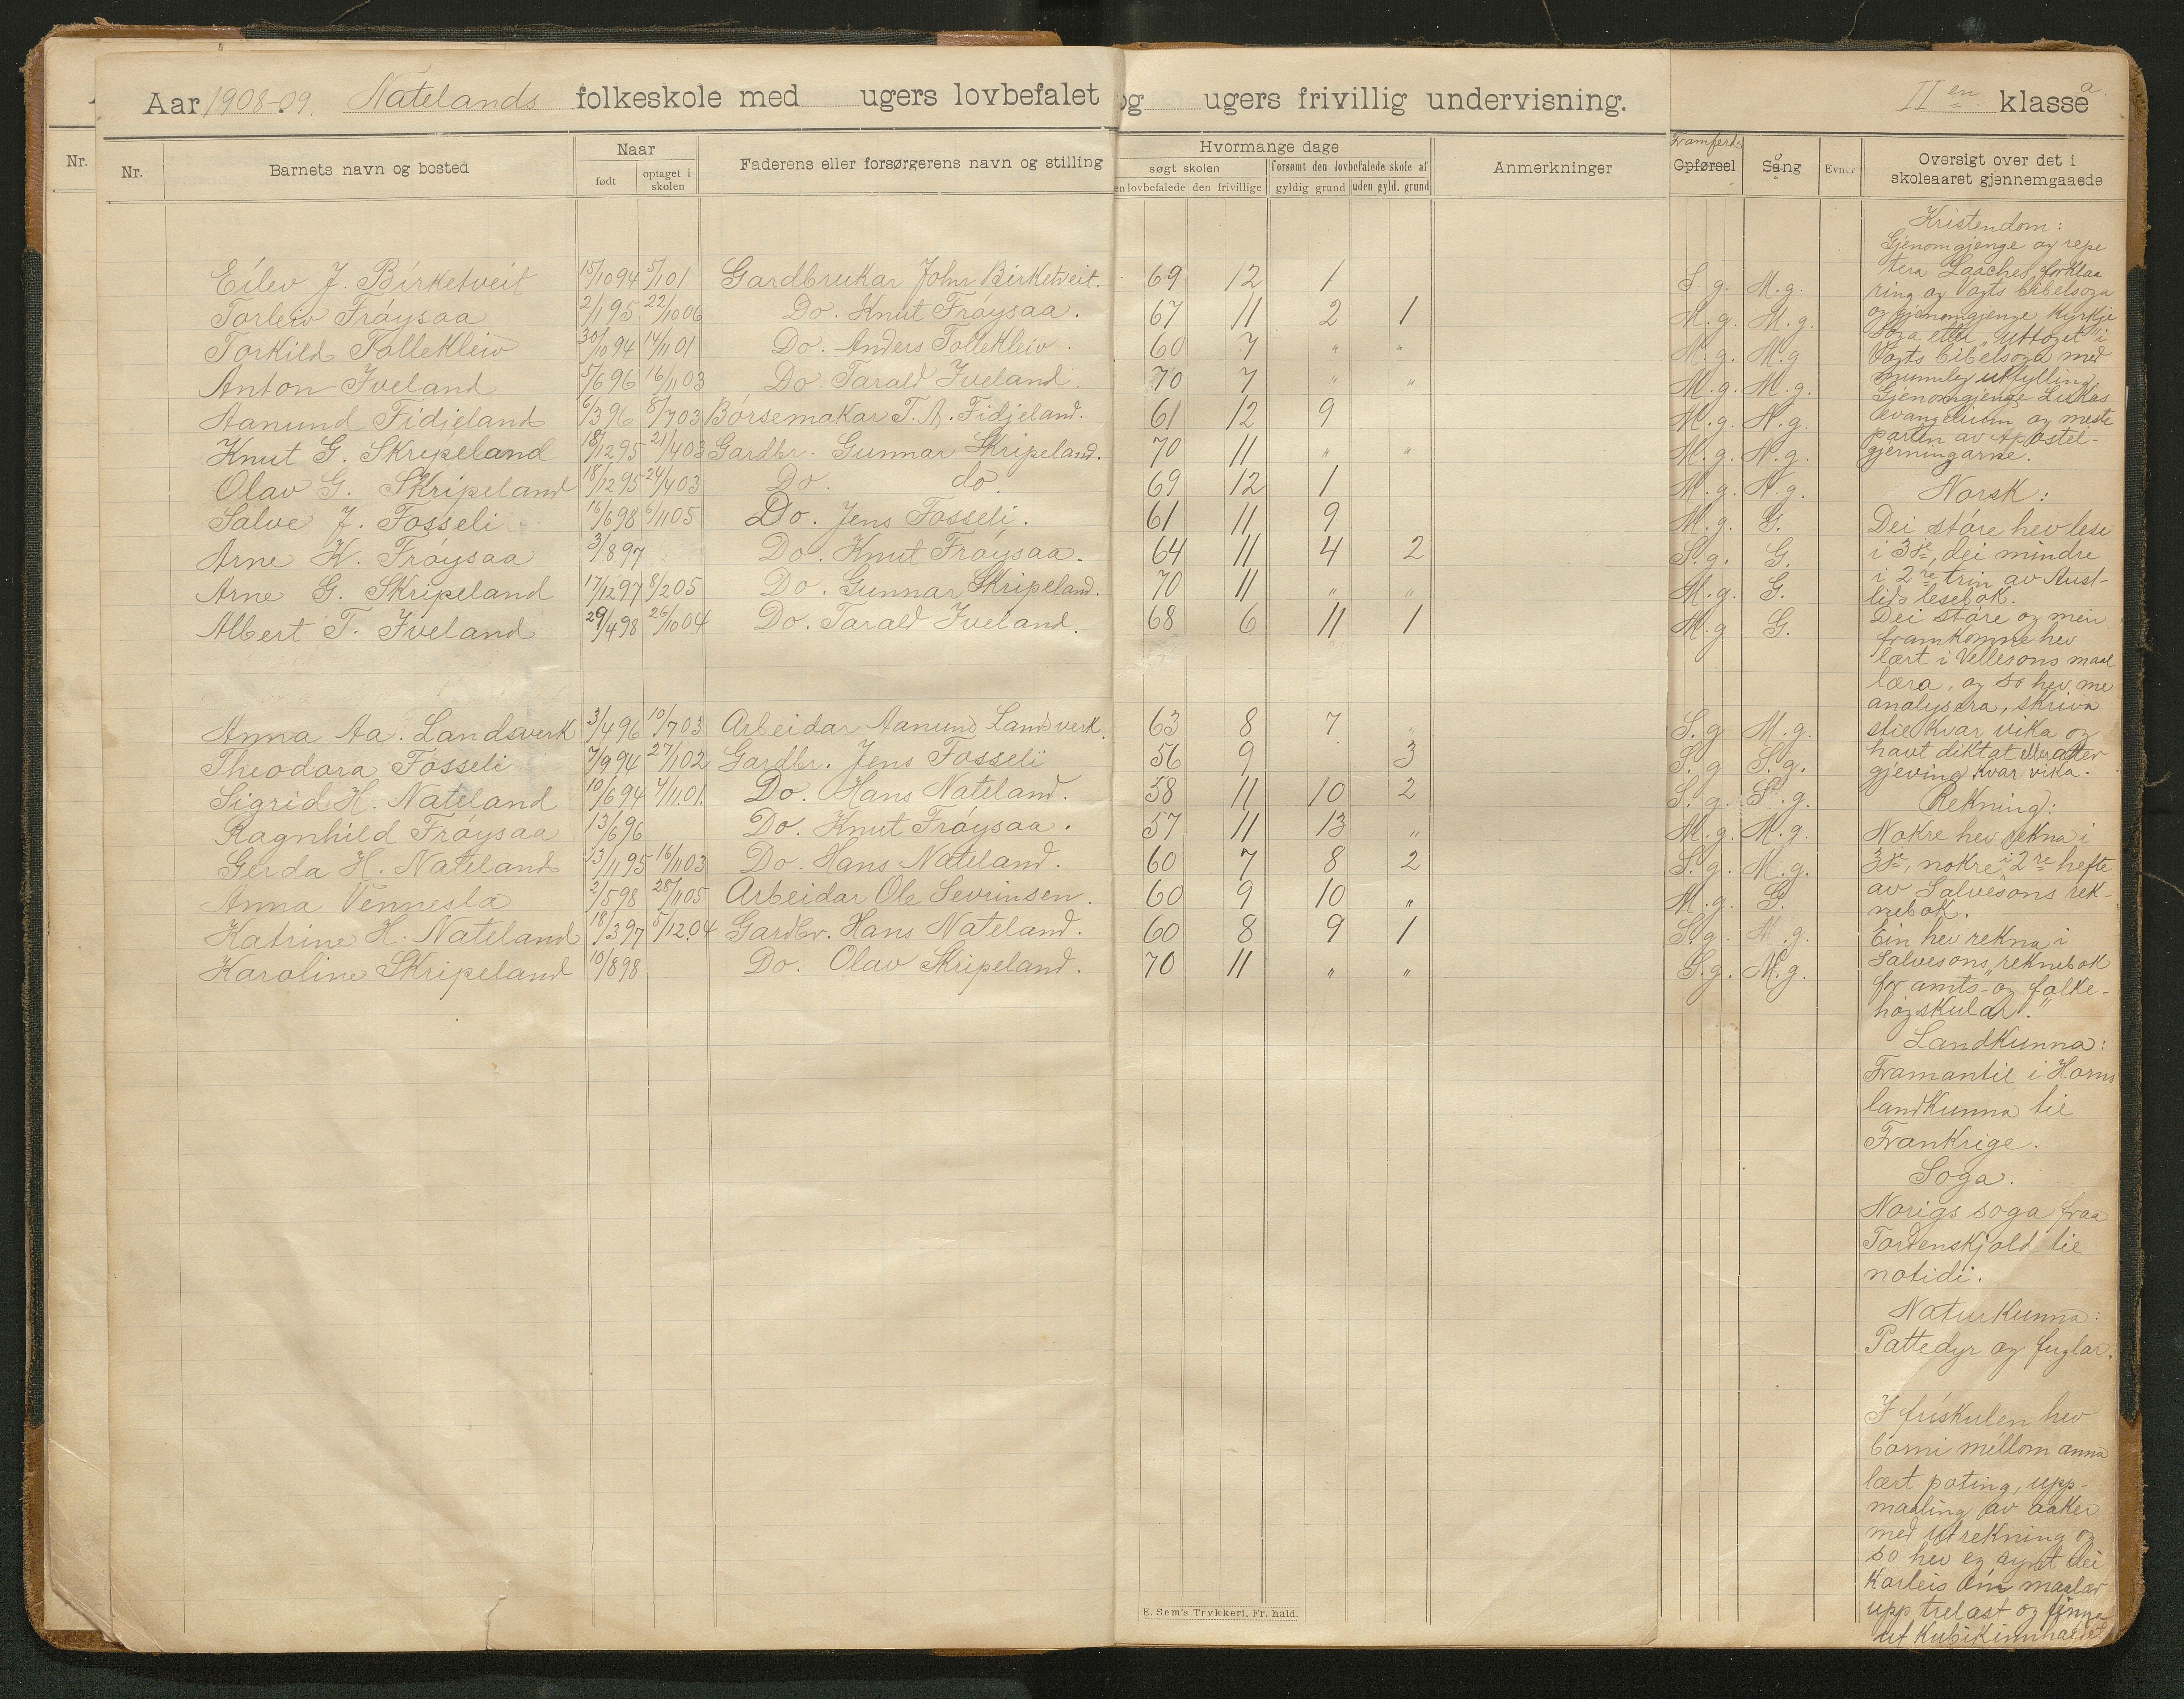 Aar 1908-09. Natelands folkeskole med ugers lovbefalet og ugers frivillig undervisning. II en klasse a.
Nr. Nr. Barnets navn og bosted Naar født optaget i skolen Faderens eller forsørgerens navn og stilling Hvormange dage søgt skolen den lovbefalede den frivillige forsømt den lovbefalede skole af gyldig grund uden gyld. grund Anmerkninger Framferd Opførsel Sång Evner Oversigt over det i skoleaaret gjennemgaaede
Eilev J. Birketveit 15/10 94 5/1 01 Gardbrukar John Birketveit. 69 12 1 S. g. M. g.
Torleiv Frøysaa 2/1 95 22/10 06 Do. Knut Frøysaa. 67 11 2 1 M. g. M. g.
Torkild Tollekleiv 30/10 94 14/11 01 Do. Anders Tolleklev. 60 7 " " M. g. M. g
Anton Iveland 5/6 96 16/11 03 Do. Tarald Iveland. 70 7 " " M. g. M. g.
Aanund Fidjeland 6/3 96 8/7 03 Børsemakar T. A. Fidjeland. 61 12 9 M. g. N. g.
Knut G. Skripeland 18/12 95 21/4 03 Gardbr. Gunnar Skripeland. 70 11 " " M. g. N. g.
Olav G. Skripeland 18/12 95 24/4 03 Do. do. 69 12 1 M. g. N. g.
Salve J. Fosseli 16/6 98 6/11 05 Do. Jens Fosseli. 61 11 9 M. g. G.
Arne K. Frøysaa 3/8 97 Do. Knut Frøysaa. 64 11 4 2 S. g. G.
Arne G. Skripeland 17/12 97 8/2 05 Do. Gunnar Skripeland. 70 11 " " M. g. G.
Albert T. Iveland 29/4 98 26/10 04 Do. Tarald Iveland. 68 6 11 1 M. g G.
Anna Aa. Landsverk 3/4 96 10/7 03 Arbeidar Aanund Landsverk. 63 8 7 " S. g M. g.
Theodora Fosseli 7/9 94 27/1 02 Gardbr. Jens Fosseli 56 9 3 S. g S. g.
Sigrid H. Nateland 10/6 94 4/11 01. Do. Hans Nateland. 58 11 10 2 S. g. S. g.
Ragnhild Frøysaa 13/6 96 Do. Knut Frøysaa. 57 11 13 " M. g. M. g.
Gerda H. Nateland 13/11 95 16/11 03 Do. Hans Nateland. 60 7 8 2 S. g. M. g.
Anna Vennesla 2/5 98 28/11 05 Arbeidar Ole Sevrinsen. 60 9 10 " M. g. G.
Katrine H. Nateland 18/3 97 5/12 04 Gardbr. Hans Nateland. 60 8 9 1 S. g. M. g.
Karoline Skripeland 10/8 98 Do. Olav Skripeland. 70 11 " " S. g. M. g.
Kristendom:
Gjenomgjenge og repe
tera Laaches forklaa
ring og Vogts bibelsoga
og gjenomgjenge kyrkje
soga etter "uttoget" i
Vogts bibelsoga med
munnleg utfylling.
Gjenomgjenge Lukas
evangelium og meste
parten av Apostel-
gjerningarne.
Norsk:
Dei støre hev lese
i 3dje, dei mindre
i 2re trin av Aust-
lids lesebok.
Dei støre og meir
framkomne hev
lært i Vellesons maal
læra, og so hev me
analysera, skriva
stil kvar vika og
havt diktat eller atter
gjeving kvar vika.
Rekning:
Nokre hev rekna i
3dje, nokre i 2re hefte
av Salvesons rek-
nebok.
Ein hev rekna i
Salvesons "reknebok
for amts- og folke-
høgskular."
Landkunna:
Framantil i Horns
landkunna til
Frankrige.
Soga.
Norigs soga fraa
Tordenskjold til
notidi.
Naturkunna:
Pattedyr og fuglar.
I friskulen hev
borni millom anna
lært poting, upp-
maaling av aaker
med utrekning og
so hev eg synt dei
korleis ein maaler
upp trelast og finna
ut kubikinnhaldet
E. Sem's Trykkeri, Fr. hald.